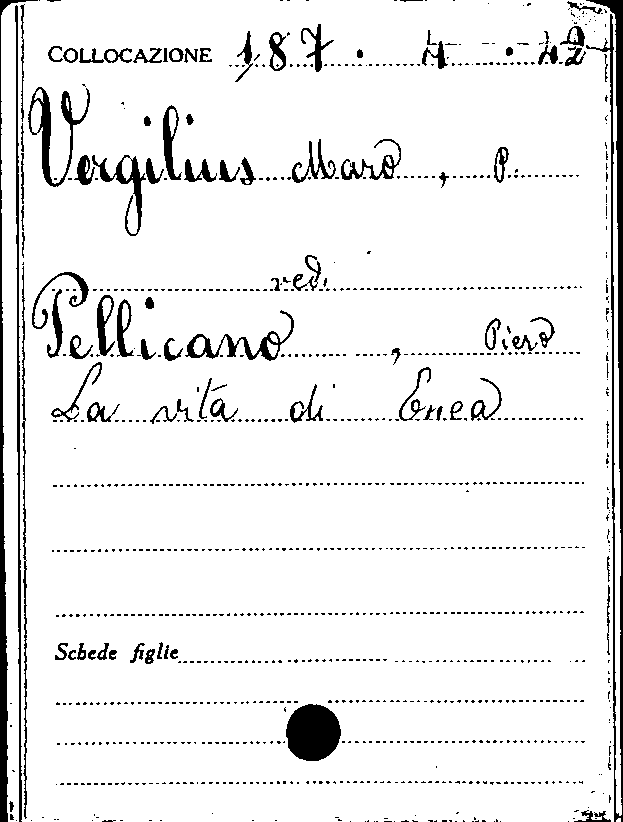 COLLOCAZIONE 187 · 4 · 42
Vergilius Maro, P.
ved.
Pellicano, Piero
La vita di Enea
Schede figlie